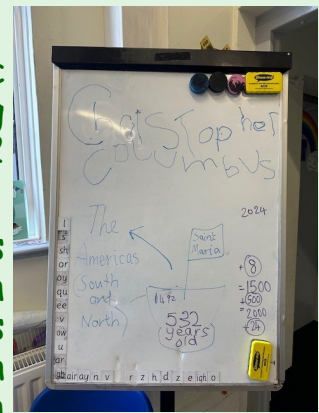 ChriSTopheT
COLUmbUS
2024
The
Americas
(South
and
North)
Saint
Maria
1492
532
years
old
+8
=1500
+500
=2000
+24
l
s
sh
or
oy
qu
ee
v
ow
u
ar
air ay n v r z h d z e igh o